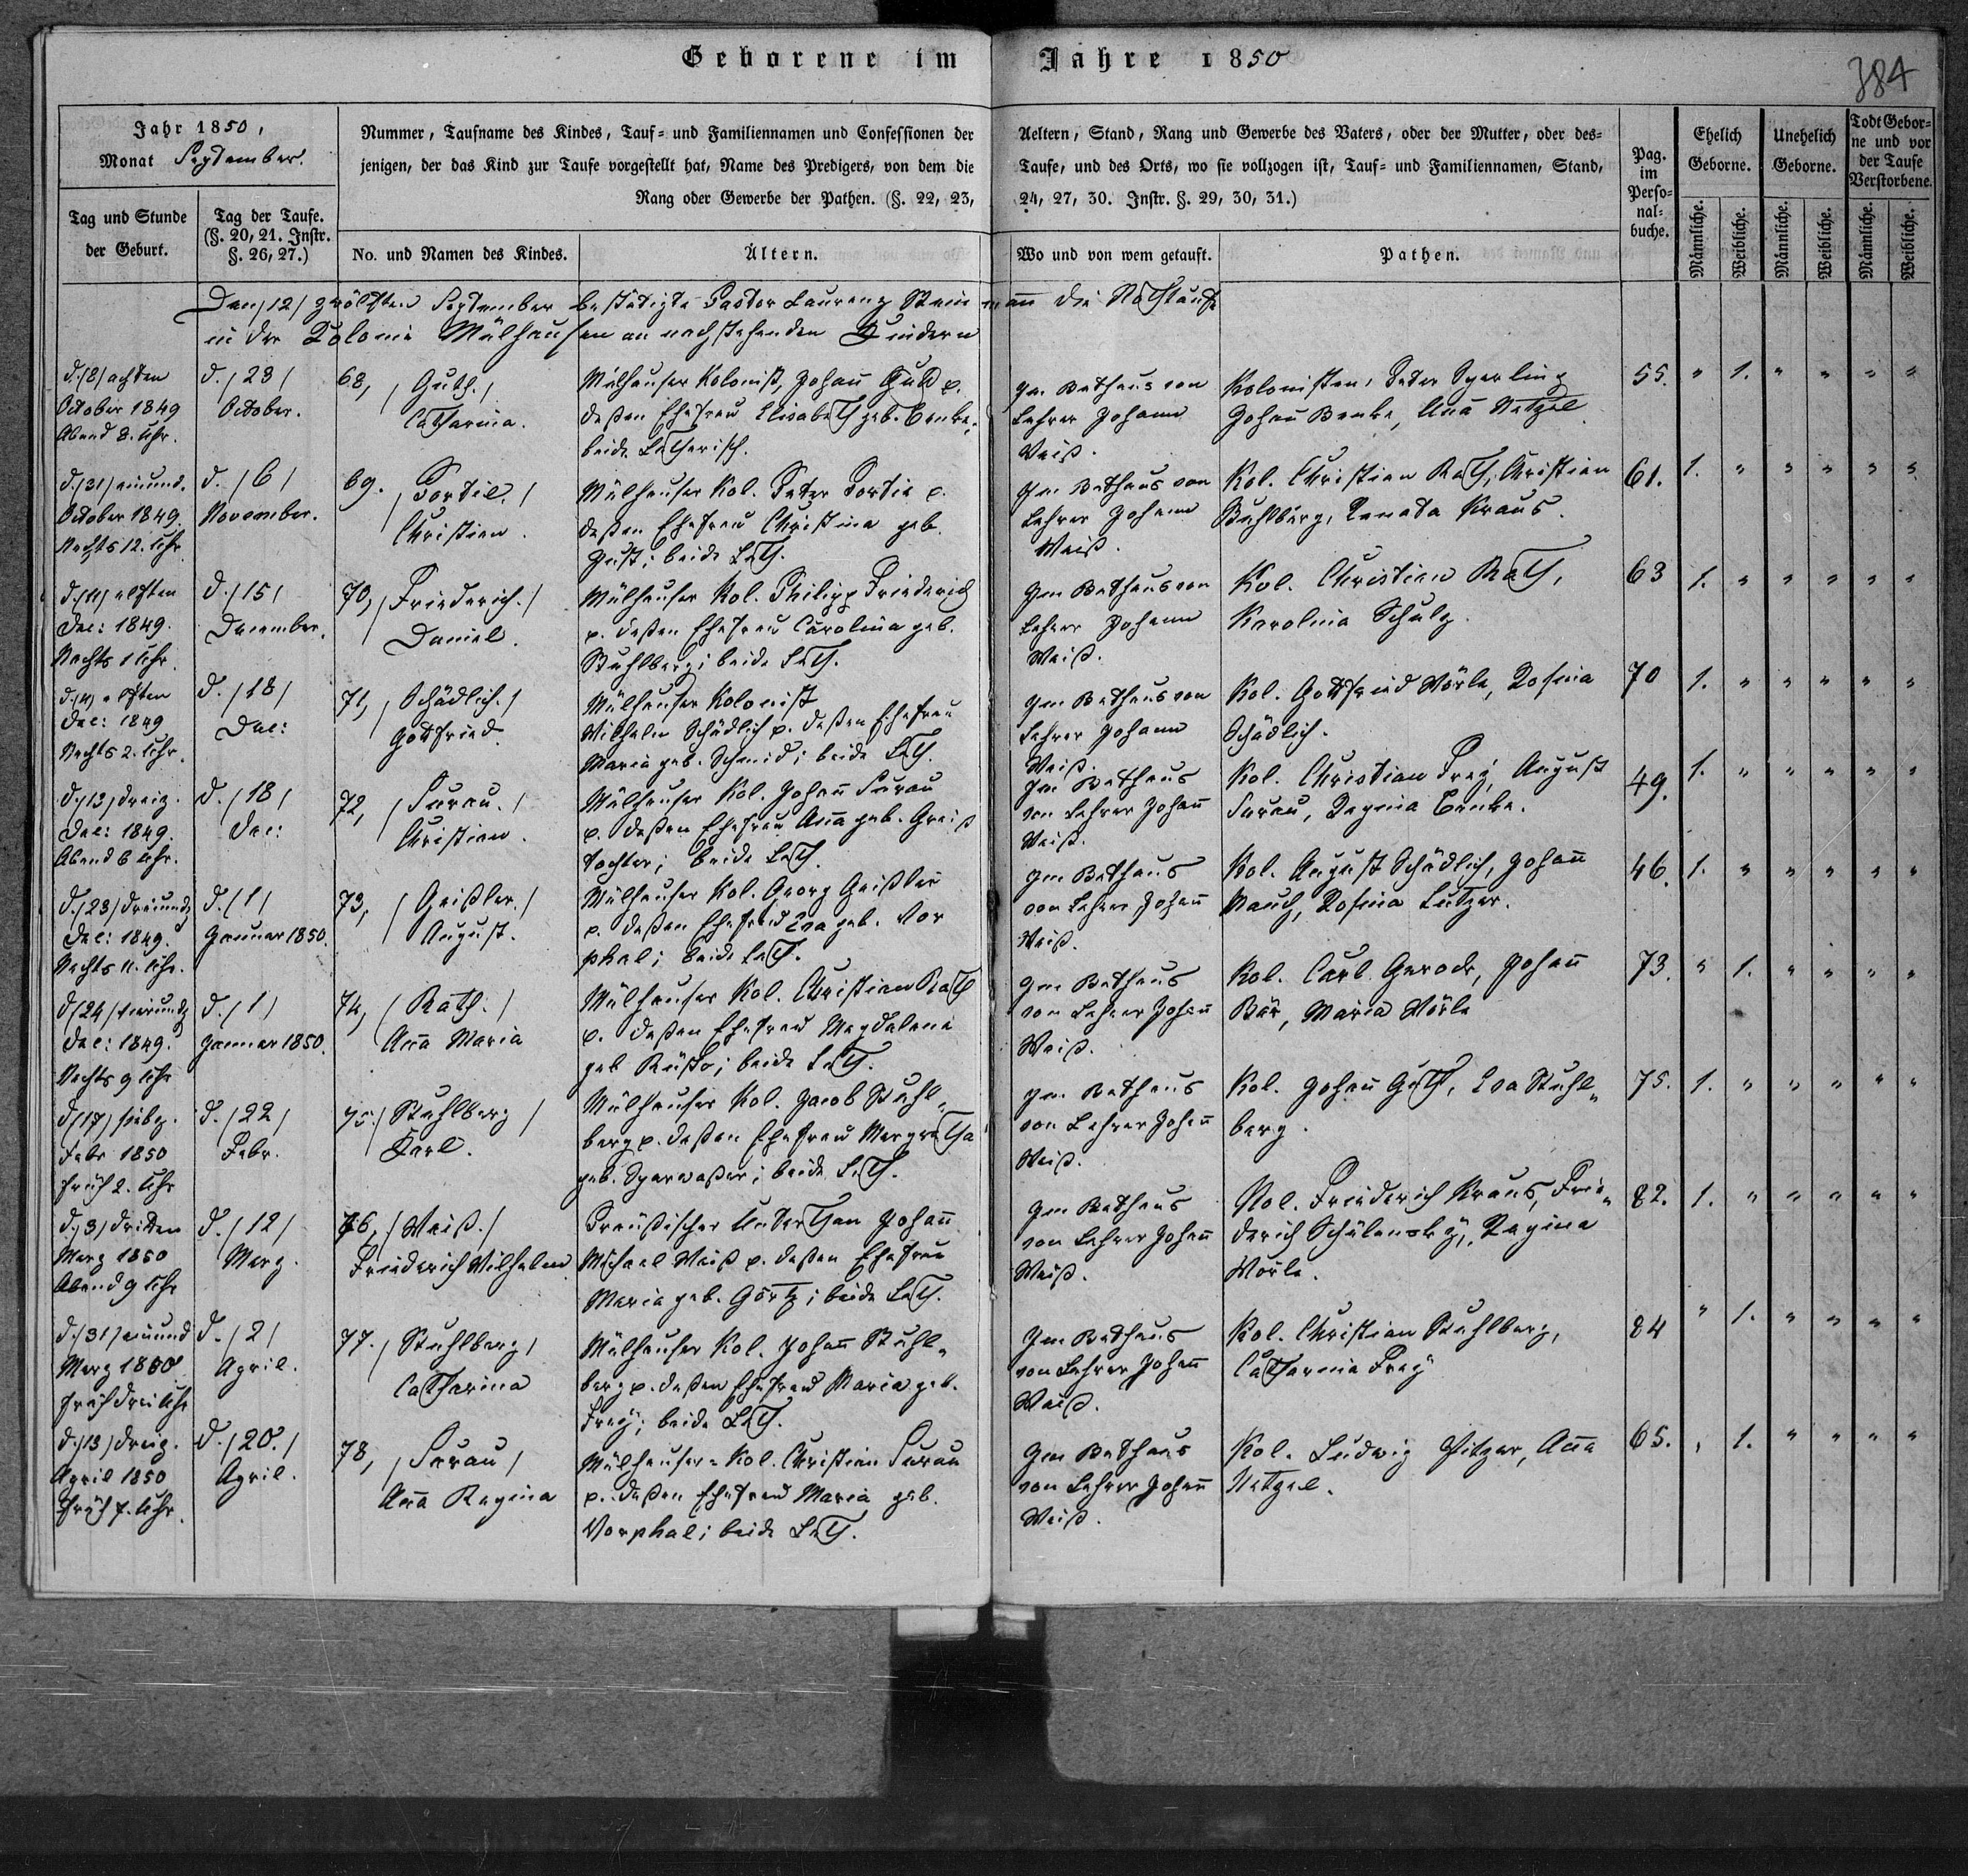 Geborene im Jahre 1850
384
Jahr 1850,
Monat September.
Nummer, Taufname des Kindes, Tauf= und Familiennamen und Confessionen der Aeltern, Stand, Rang und Gewerbe des Vaters, oder der Mutter, oder des=
jenigen, der das Kind zur Taufe vorgestellt hat, Name des Predigers, von dem die Taufe, und des Orts, wo sie vollzogen ist, Tauf= und Familiennamen, Stand,
Rang oder Gewerbe der Pathen. (§. 22, 23, 24, 27, 30. Instr. §. 29, 30, 31.)
Tag und Stunde
der Geburt.
Tag der Taufe.
(§. 20, 21. Instr.
§. 26, 27.)
No. und Namen des Kindes.
Ältern.
Wo und von wem getauft.
Pathen.
Pag.
im
Perso=
nal=
buche.
Ehelich
Geborne.
Unehelich
Geborne.
Todt Gebor=
ne und vor
der Taufe
Verstorbene.
Männliche.
Weibliche.
Männliche.
Weibliche.
Männliche.
Weibliche.
Den /12/ zwölften September bestätigte Pastor Laurenz Steinmann die Nothtaufe
in der Kolonie Mülhausen an nachstehenden Kindern
d. /8/ achten
October 1849
Abend 8. Uhr.
d. /23/
October.
68, /Guth./
Catharina.
Mülhauser Kolonist, Johann Guth p.
deßen Ehefrau Elisabeth geb. Benke,
beide Lutherisch.
Im Bethaus von
Lehrer Johann
Weiß.
Kolonisten, Peter Sperling
Johann Benke, Anna Netzel.
55. " 1. " " " "
d. /31/ einund.
October 1849.
Nachts 12. Uhr.
d. /6/
November.
69. /Portie./
Christian.
Mülhauser Kol. Peter Portie p.
deßen Ehefrau Christina geb.
Just; beide Luth.
Im Bethaus von
Lehrer Johann
Weiß.
Kol. Christian Rath, Christian
Stuhlberg, Renata Kraus.
61. 1. " " " " "
d. /11/ elften
Dec: 1849.
Nachts 1 Uhr.
d. /15/
December.
70, /Friederich./
Daniel.
Mülhauser Kol. Philipp Friederich
p. deßen Ehefrau Carolina geb.
Stuhlberg; beide Luth.
Im Bethaus von
Lehrer Johann
Weiß.
Kol. Christian Rath,
Karolina Schulz.
63 1. " " " " "
d. /11/ elften
Dec: 1849
Nachts 2. Uhr.
d. /18/
Dec:
71, /Schädlich./
Gottfried.
Mülhauser Kolonist
Wilhelm Schädlich p. deßen Ehefrau
Maria geb. Schmid; beide Luth.
Im Bethaus von
Lehrer Johann
Weiß.
Kol. Gottfried Wörle, Rosina
Schädlich.
70 1. " " " " "
d. /13/ dreiz.
Dec: 1849.
Abend 6 Uhr.
d. /18/
Dec:
72, /Surau./
Christian.
Mülhauser Kol. Johann Surau
p. deßen Ehefrau Anna geb. Greiß
tochter; beide Luth.
Im Bethaus
von Lehrer Johann
Weiß.
Kol. Christian Frey, August
Surau, Regina Benke.
49. 1. " " " " "
d. /23/ dreiund
Dec: 1849.
Nachts 11. Uhr.
d. /1/
Januar 1850.
73, /Geißler./
August.
Mülhauser Kol. Georg Geißler
p. deßen Ehefrau Eva geb. Vor
phal; beide Luth.
Im Bethaus
von Lehrer Johann
Weiß.
Kol. August Schädlich, Johann
Mauch, Rosina Lutzer.
46. 1. " " " " "
d. /24/ vierund
Dec: 1849.
Nachts 9 Uhr
d. /1/
Januar 1850.
74, /Rath./
Anna Maria
Mülhauser Kol. Christian Rath
p. deßen Ehefrau Magdalena
geb Küsto; beide Luth.
Im Bethaus
von Lehrer Johann
Weiß.
Kol. Carl Gerock, Johann
Bär, Maria Wörle
73. " 1. " " " "
d. /17/ siebz.
Febr 1850
früh 2. Uhr
d. /22/
Febr.
75. /Stuhlberg/
Karl.
Mülhauser Kol. Jacob Stuhl=
berg p. deßen Ehefrau Margretha
geb. Sparwaßer; beide Luth.
Im Bethaus
von Lehrer Johann
Weiß.
Kol. Johann Guth, Eva Stuhl=
berg.
75. 1. " " " " "
d. /3/ dritten
Merz 1850
Abend 9 Uhr
d. /12/
Merz.
76, /Weiß./
Friederich Wilhelm.
Preußischer Unterthan Johann
Michael Weiß p. deßen Ehefrau
Maria geb. Görtz; beide Luth.
Im Bethaus
von Lehrer Johann
Weiß.
Kol. Friederich Kraus, Frie=
derich Schülensky, Regina
Wörle.
82. 1. " " " " "
d. /31/ einund
Merz 1850
früh drei Uhr
d. /2/
April.
77. /Stuhlberg/
Catharina
Mülhauser Kol. Johann Stuhl=
berg p. deßen Ehefrau Maria geb.
Frey; beide Luth.
Im Bethaus
von Lehrer Johann
Weiß.
Kol. Christian Stuhlberg,
Catharina Frey
84 " 1. " " " "
d. /13/ dreiz.
April 1850
früh 7. Uhr.
d. /20./
April.
78, /Surau/
Anna Regina
Mülhauser= Kol. Christian Surau
p. deßen Ehefrau Maria geb.
Vorphal; beide Luth.
Im Bethaus
von Lehrer Johann
Weiß.
Kol. Ludwig Pitzer, Anna
Netzel.
65. " 1. " " " "